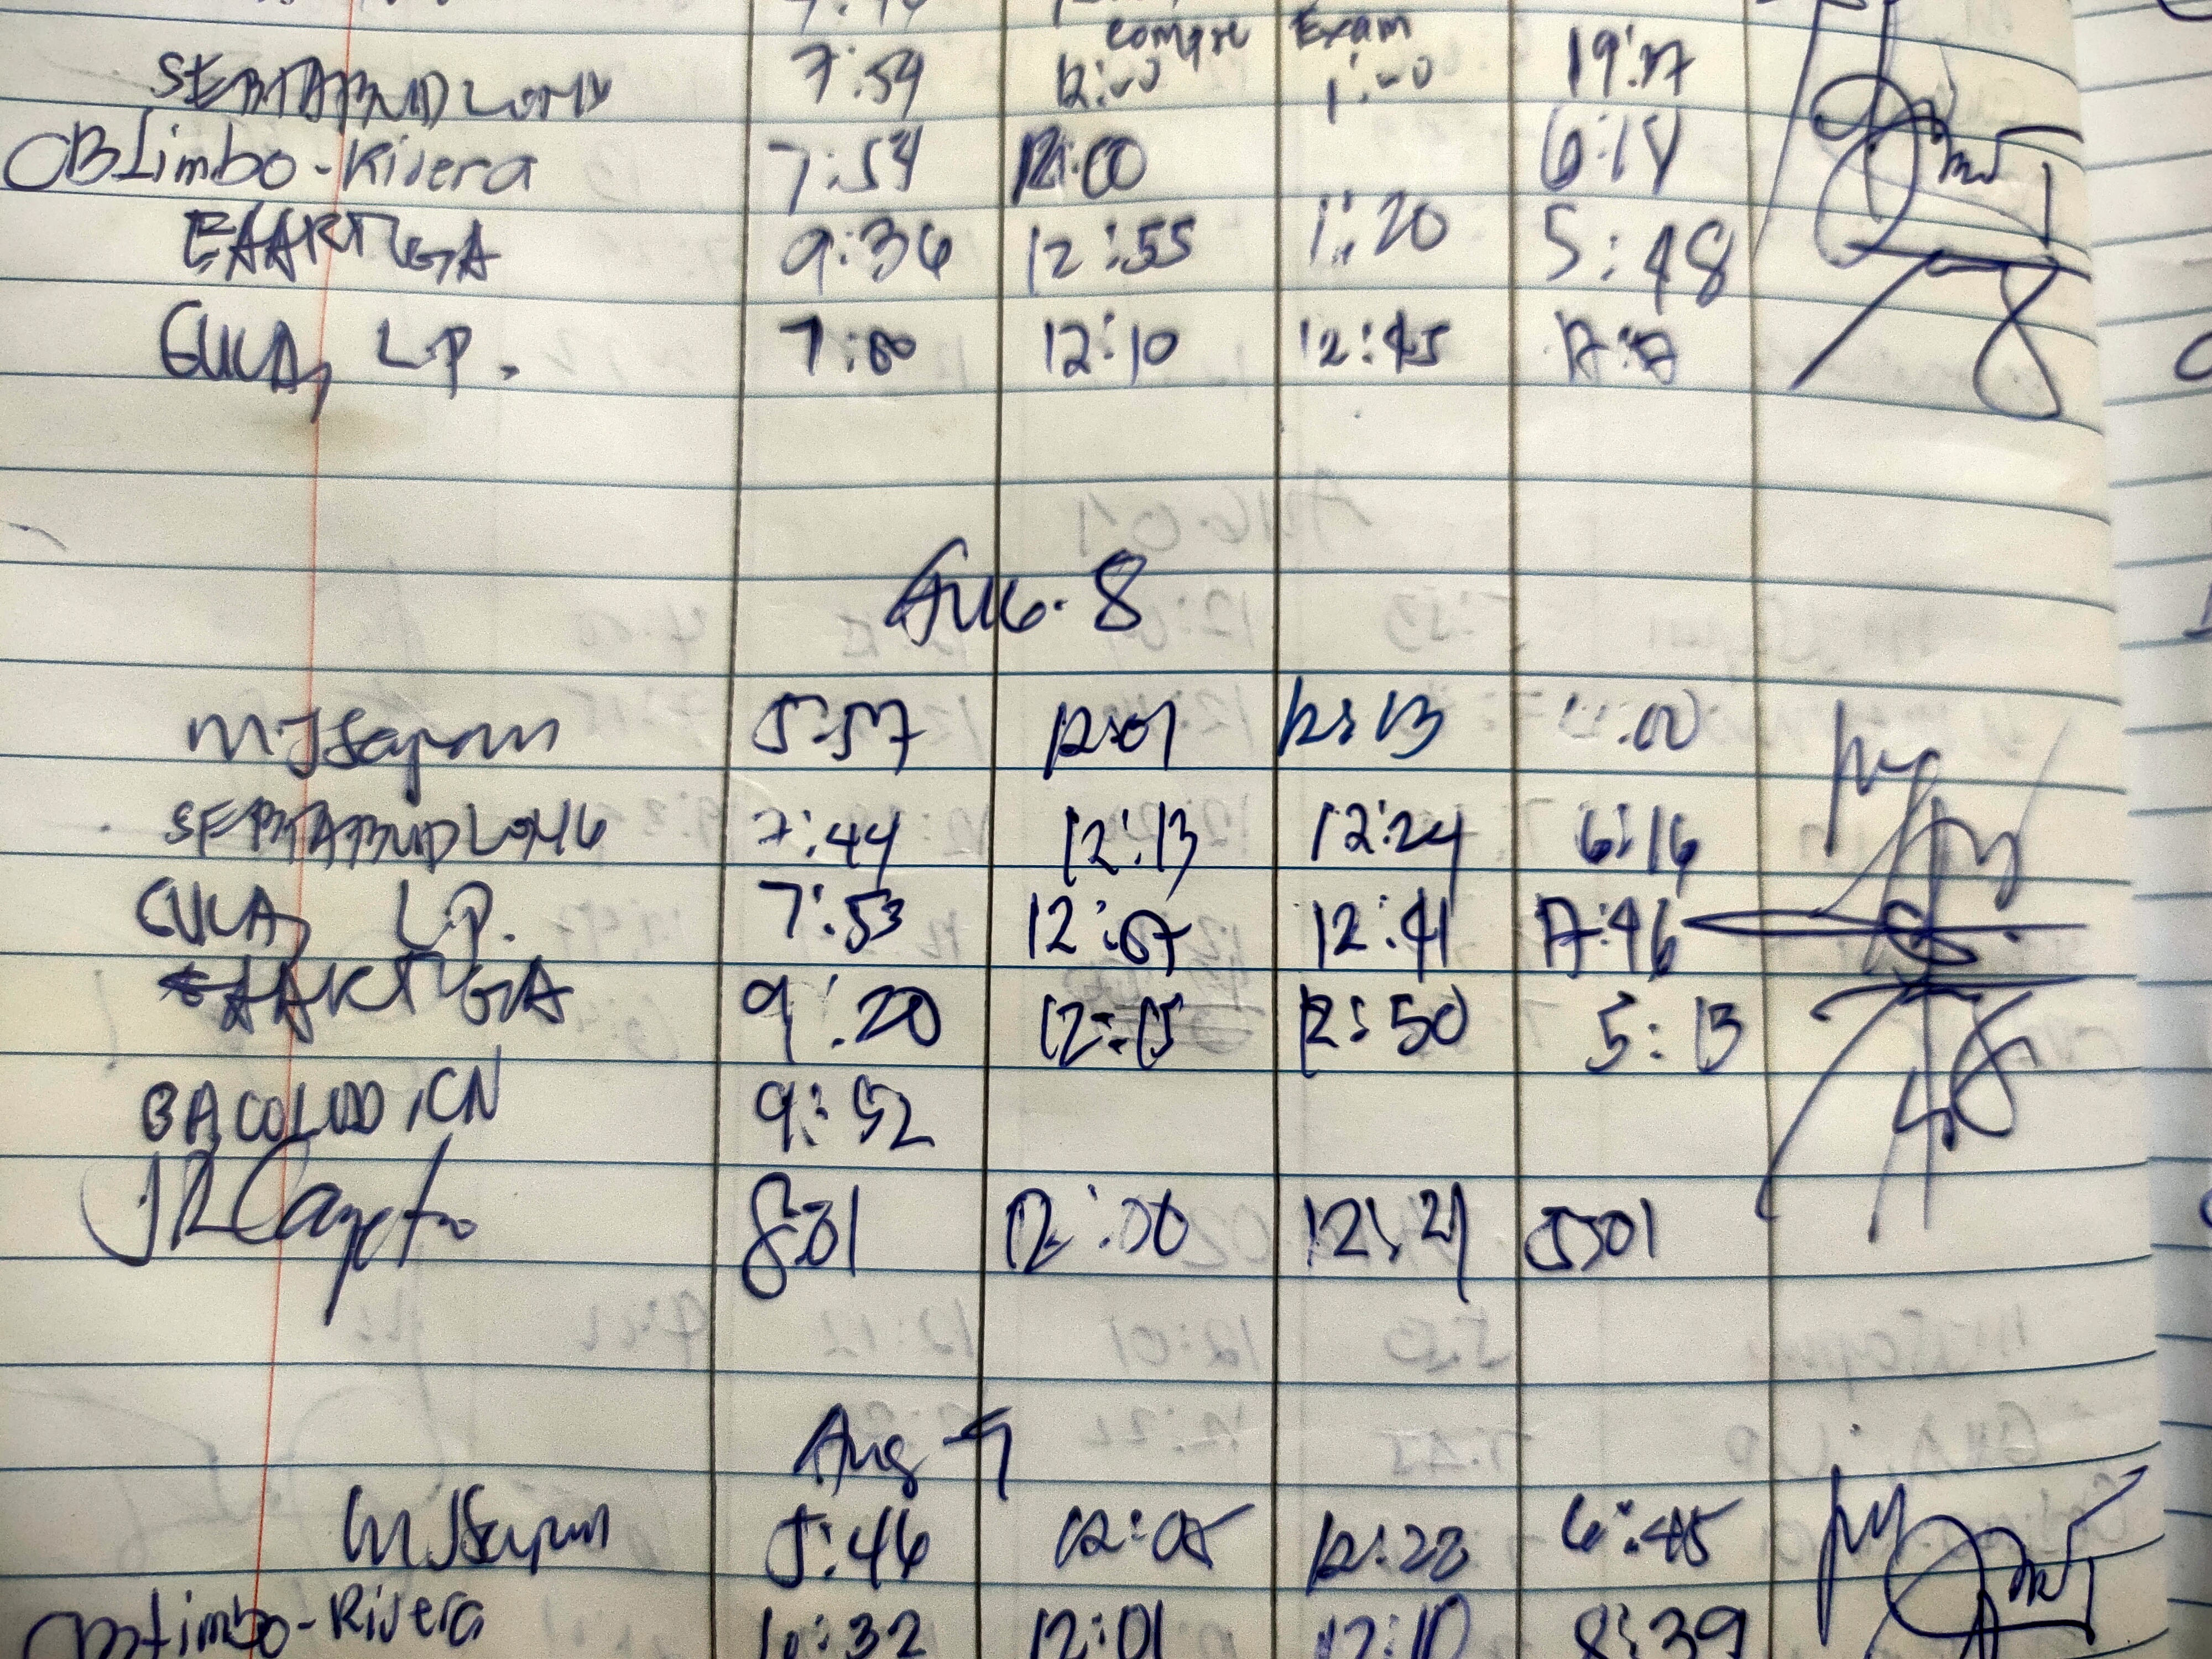 Compre Exam
SEBTABUDLONG 7:59 12:00 1:00 19:17
OBLimbo-Rivera 7:54 12:00 6:14
EAARTUGA 9:36 12:55 1:20 5:48
GULA, L.P. 7:00 12:10 12:45 17:17
AUG. 8
MJSayson 5:57 12:01 12:13 :00
SEBTABUDLONG 7:44 12:13 12:24 6:16
GULA, L.P. 7:53 12:07 12:41 17:46
EAARTUGA 9:20 12:15 12:50 5:13
BACOLOD, CN 9:52
JRCayeto 8:01 12:00 12:21 5:01
Aug 9
MJSayson 5:46 12:05 12:22 6:45
OBLimbo-Rivera 10:32 12:01 12:10 8:39